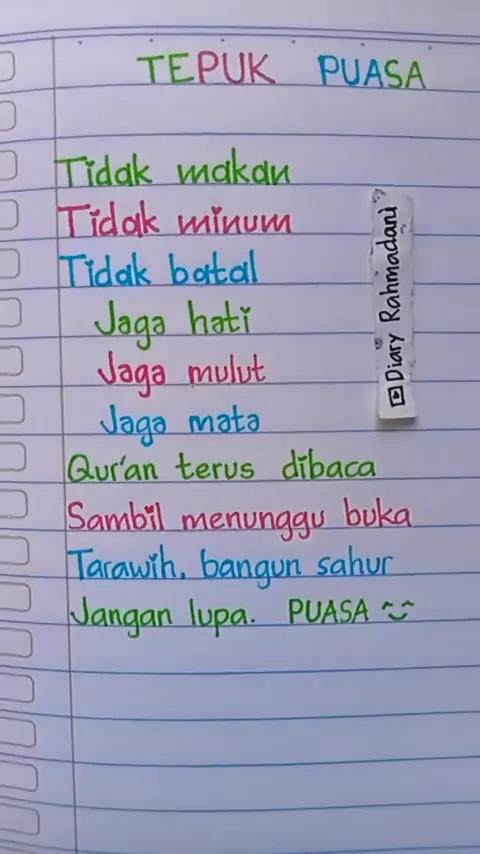 TEPUK PUASA
Tidak makan
Tidak minum
Tidak batal
Jaga hati
Jaga mulut
Jaga mata
Qur'an terus dibaca
Sambil menunggu buka
Tarawih, bangun sahur
Jangan lupa. PUASA
Diary Rahmadani